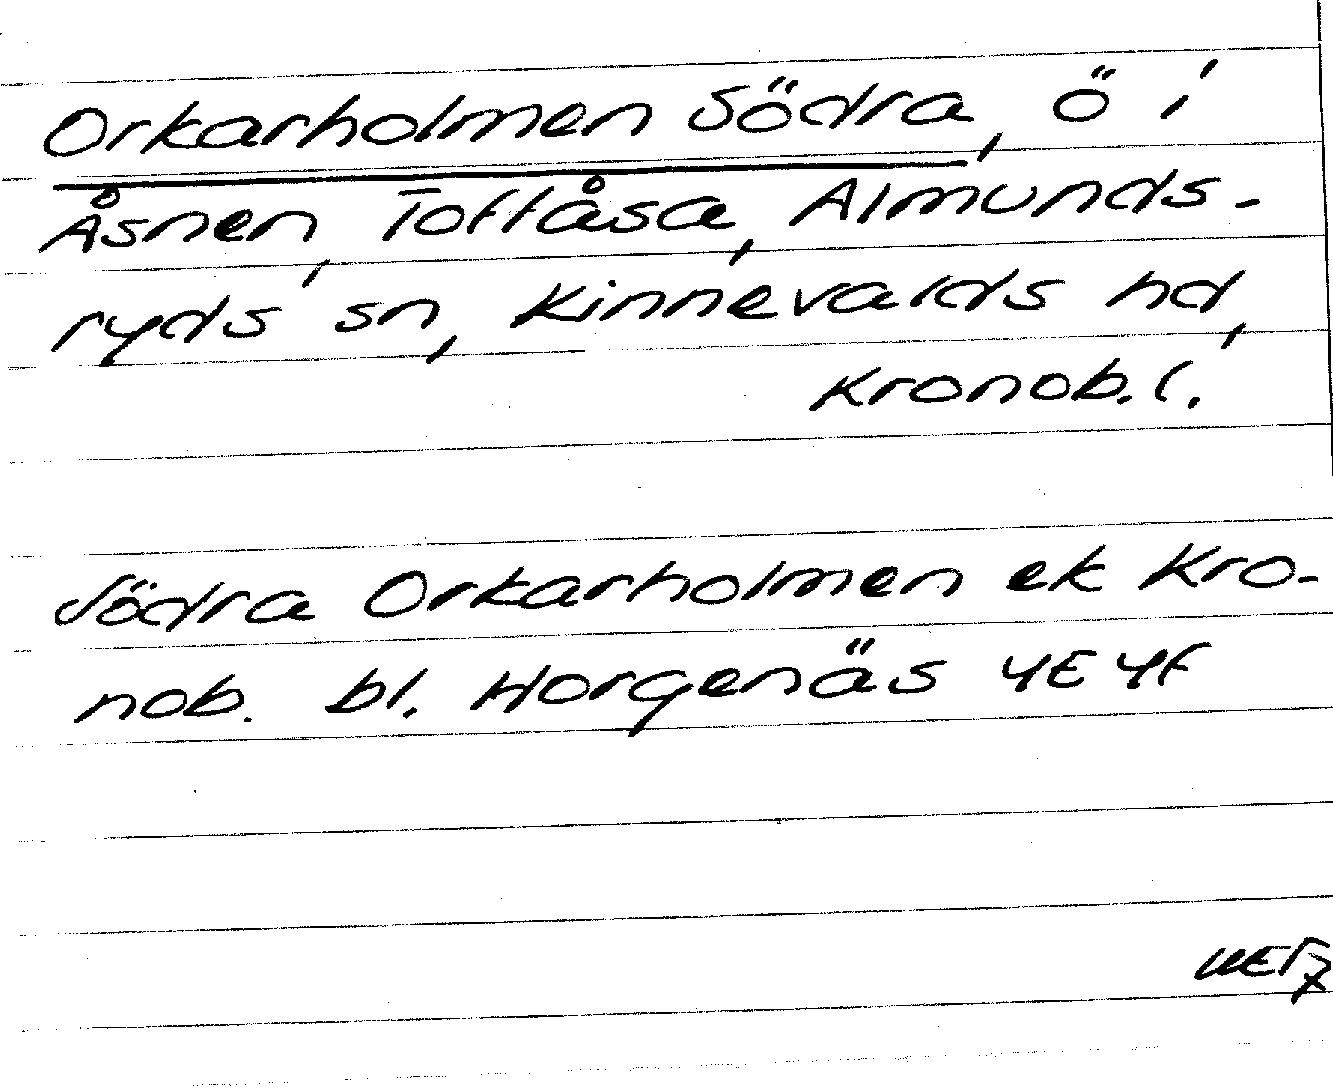 Orkarholmen Södra, ö i
Åsnen, Toftåsa, Almunds-
ryds sn, Kinnevalds hd,
Kronob. l.
Södra Orkarholmen ek Kro-
nob. bl. Horgenäs 4E 4f